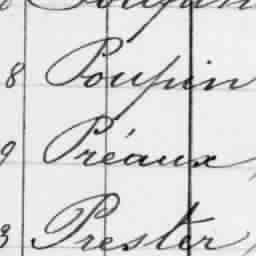 8 Poupin
9 Préaux
3 Prester